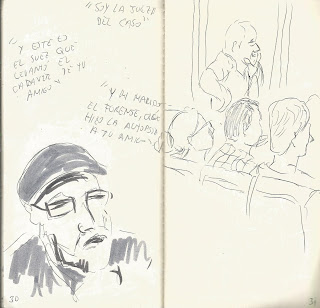 "SOY LA JUEZA
DEL CASO"
"Y ESTE ES
EL JUEZ QUE
LEVANTÓ EL
CADÁVER DE TU
AMIGO"
"Y MI MARIDO
EL FORENSE, QUE
HIZO LA AUTOPSIA
A TU AMIGO"
30
31